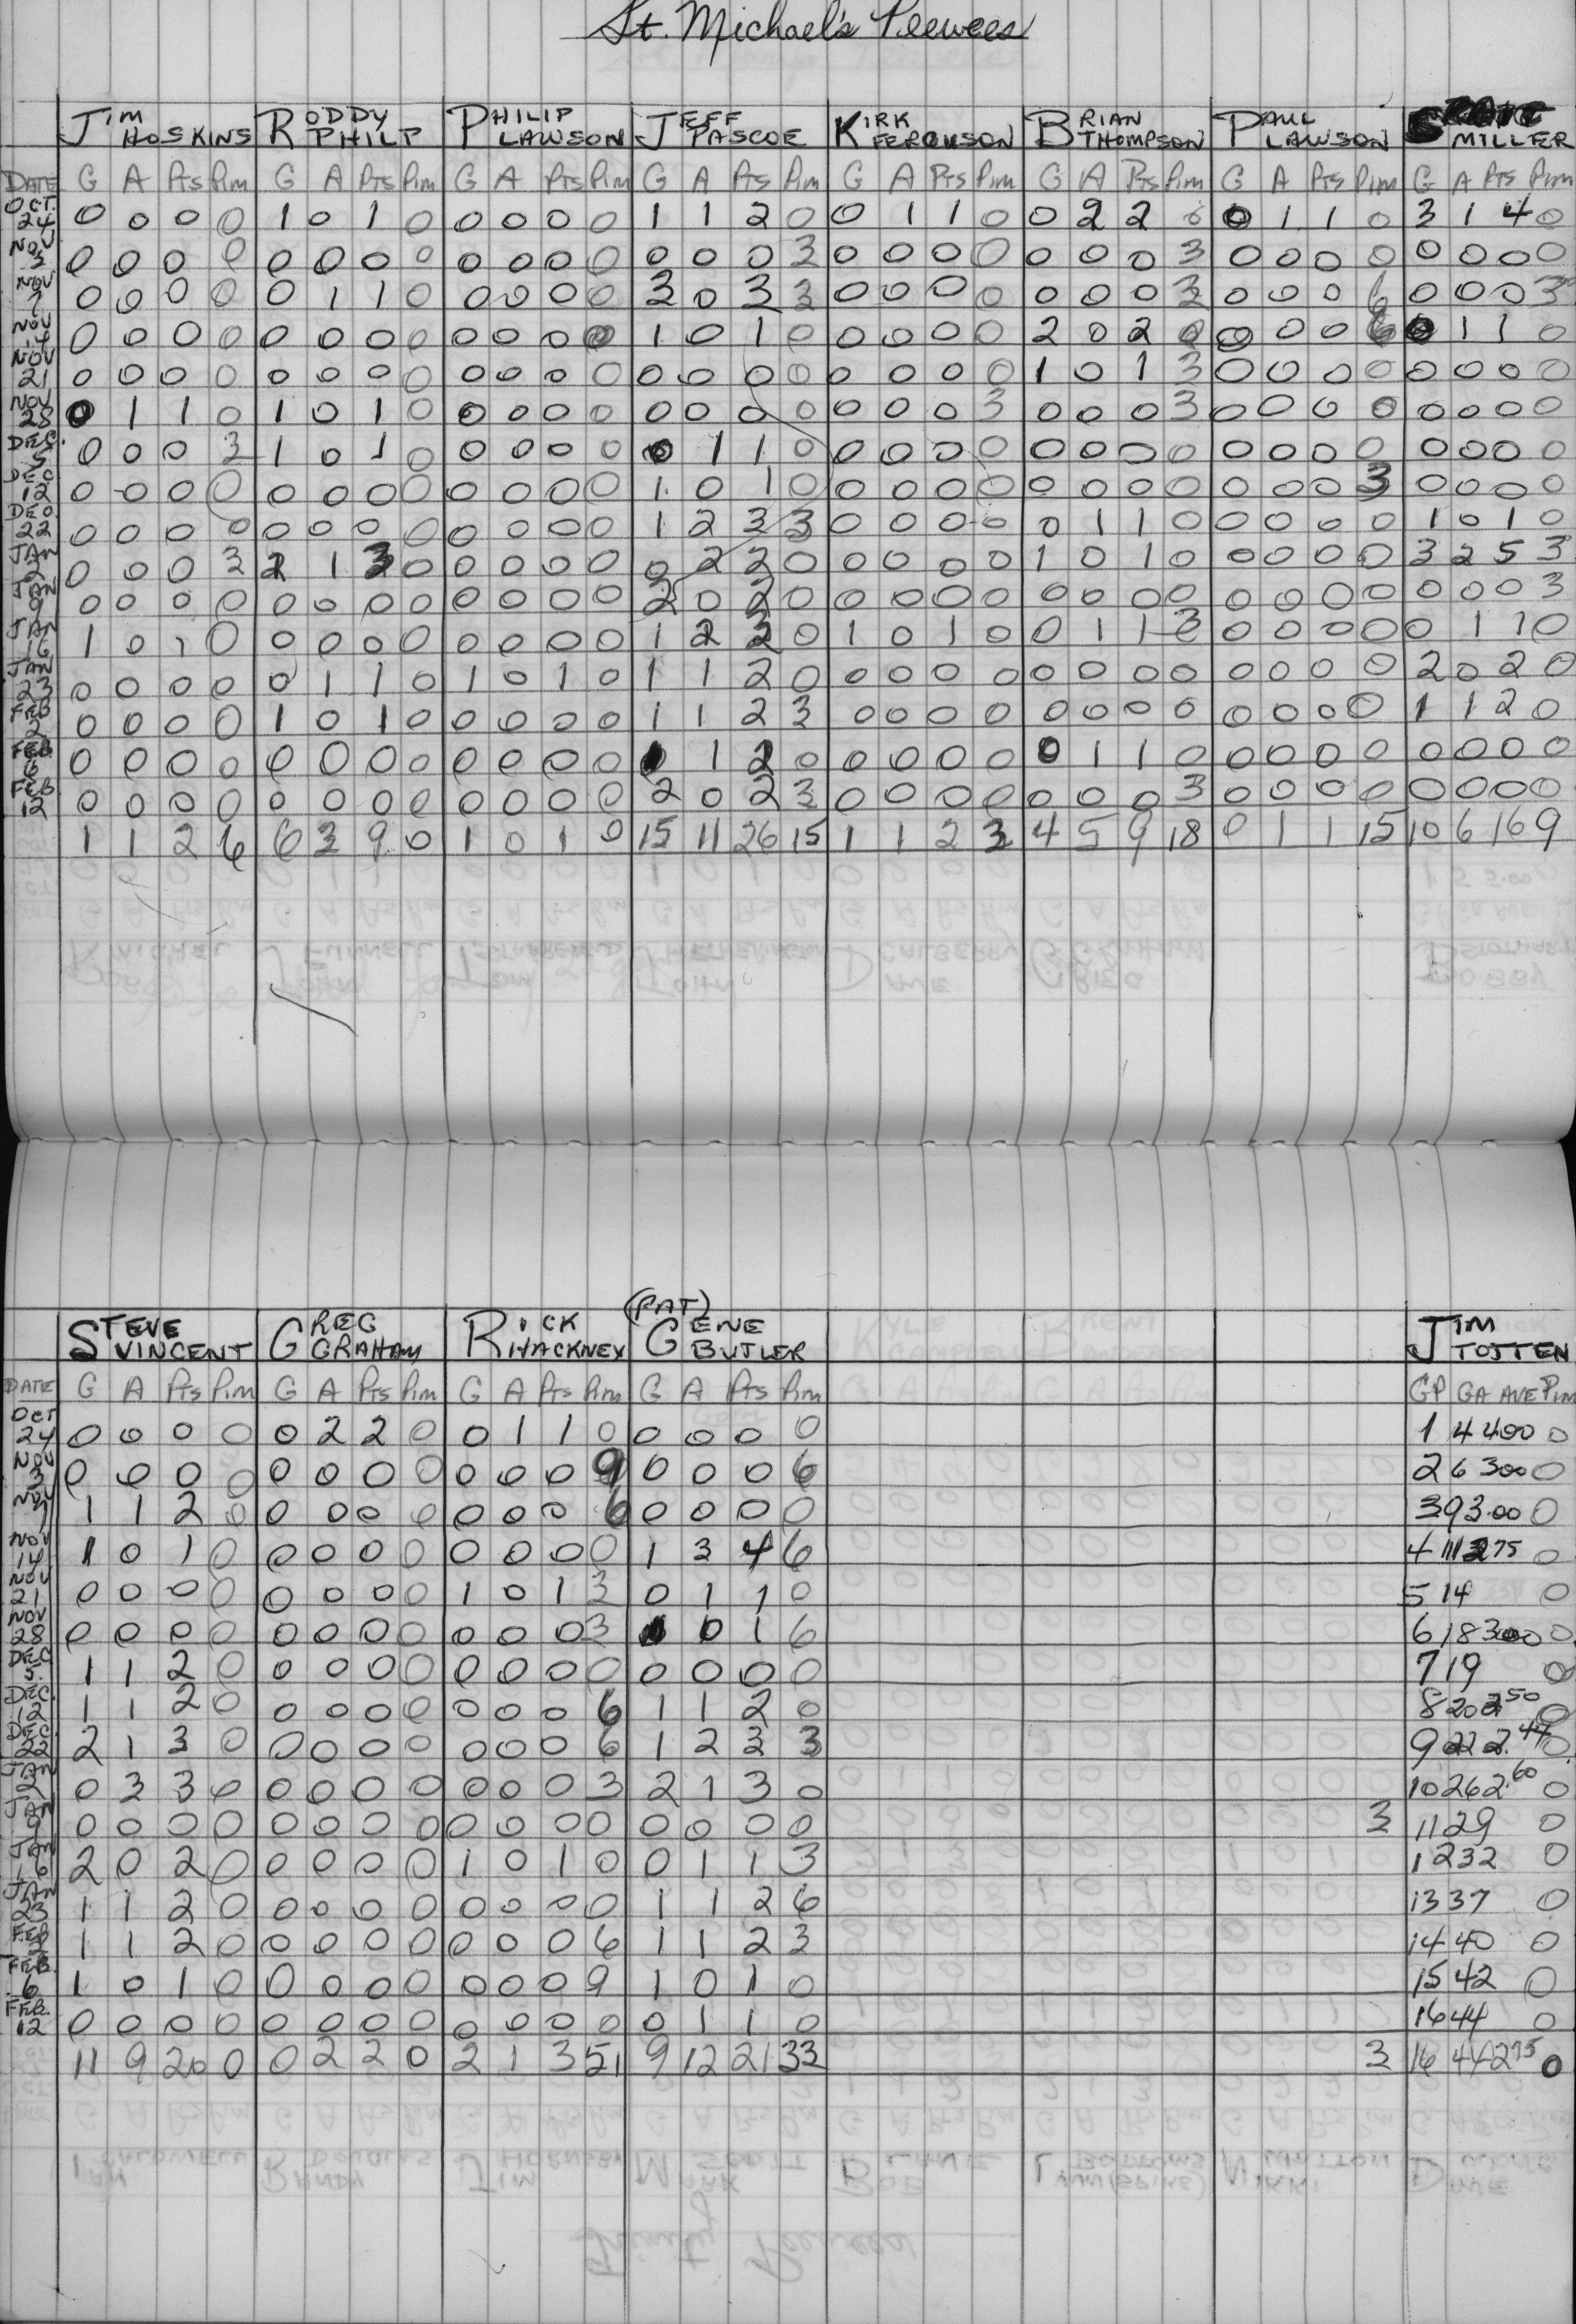 St. Michael's Peewees
JIM HOSKINS RODDY PHILP PHILIP LAWSON JEFF PASCOE KIRK FERGUSON BRIAN THOMPSON PAUL LAWSON MILLER
DATE G A Pts Pim G A Pts Pim G A Pts Pim G A Pts Pim G A Pts Pim G A Pts Pim G A Pts Pim G A Pts Pim
OCT. 24 0 0 0 0 1 0 1 0 0 0 0 0 1 1 2 0 0 1 1 0 0 2 2 0 0 1 1 0 3 1 4 0
NOV 3 0 0 0 0 0 0 0 0 0 0 0 0 0 0 0 3 0 0 0 0 0 0 0 3 0 0 0 0 0 0 0 0
NOV 7 0 0 0 0 0 1 1 0 0 0 0 0 3 0 3 3 0 0 0 0 0 0 0 3 0 0 0 6 0 0 0 3
NOV 14 0 0 0 0 0 0 0 0 0 0 0 0 1 0 1 0 0 0 0 0 2 0 2 0 0 0 0 6 0 1 1 0
NOV 21 0 0 0 0 0 0 0 0 0 0 0 0 0 0 0 0 0 0 0 0 1 0 1 3 0 0 0 0 0 0 0 0
NOV 28 0 1 1 0 1 0 1 0 0 0 0 0 0 0 0 0 0 0 0 3 0 0 0 3 0 0 0 0 0 0 0 0
DEC. 5 0 0 0 3 1 0 1 0 0 0 0 0 0 1 1 0 0 0 0 0 0 0 0 0 0 0 0 0 0 0 0 0
DEC 12 0 0 0 0 0 0 0 0 0 0 0 0 1 0 1 0 0 0 0 0 0 0 0 0 0 0 0 3 0 0 0 0
DEC. 22 0 0 0 0 0 0 0 0 0 0 0 0 1 2 3 3 0 0 0 0 0 1 1 0 0 0 0 0 1 0 1 0
JAN 2 0 0 0 3 2 1 3 0 0 0 0 0 0 2 2 0 0 0 0 0 1 0 1 0 0 0 0 0 3 2 5 3
JAN 9 0 0 0 0 0 0 0 0 0 0 0 0 2 0 2 0 0 0 0 0 0 0 0 0 0 0 0 0 0 0 0 3
JAN 16 1 0 1 0 0 0 0 0 0 0 0 0 1 2 3 0 1 0 1 0 0 1 1 3 0 0 0 0 0 1 1 0
JAN 23 0 0 0 0 0 1 1 0 1 0 1 0 1 1 2 0 0 0 0 0 0 0 0 0 0 0 0 0 2 0 2 0
FEB 2 0 0 0 0 1 0 1 0 0 0 0 0 1 1 2 3 0 0 0 0 0 0 0 0 0 0 0 0 1 1 2 0
FEB. 6 0 0 0 0 0 0 0 0 0 0 0 0 1 1 2 0 0 0 0 0 0 1 1 0 0 0 0 0 0 0 0 0
FEB 12 0 0 0 0 0 0 0 0 0 0 0 0 2 0 2 3 0 0 0 0 0 0 0 3 0 0 0 0 0 0 0 0
1 1 2 6 6 3 9 0 1 0 1 0 15 11 26 15 1 1 2 3 4 5 9 18 0 1 1 15 10 6 16 9
STEVE VINCENT GREG GRAHAM RICK HACKNEY (PAT) GENE BUTLER JIM TOTTEN
DATE G A Pts Pim G A Pts Pim G A Pts Pim G A Pts Pim GP GA AVE Pim
OCT 24 0 0 0 0 0 2 2 0 0 1 1 0 0 0 0 0 1 4 4.00 0
NOV 3 0 0 0 0 0 0 0 0 0 0 0 9 0 0 0 6 2 6 3.00 0
NOV 7 1 1 2 0 0 0 0 0 0 0 0 6 0 0 0 0 3 9 3.00 0
NOV 14 1 0 1 0 0 0 0 0 0 0 0 0 1 3 4 6 4 11 2.75 0
NOV 21 0 0 0 0 0 0 0 0 1 0 1 3 0 1 1 0 5 14 0
NOV 28 0 0 0 0 0 0 0 0 0 0 0 3 1 0 1 6 6 18 3.00 0
DEC 5 1 1 2 0 0 0 0 0 0 0 0 0 0 0 0 0 7 19 0
DEC. 12 1 1 2 0 0 0 0 0 0 0 0 6 1 1 2 0 8 20 2.50 0
DEC. 22 2 1 3 0 0 0 0 0 0 0 0 6 1 2 3 3 9 22 2.44 0
JAN 2 0 3 3 0 0 0 0 0 0 0 0 3 2 1 3 0 10 26 2.60 0
JAN 9 0 0 0 0 0 0 0 0 0 0 0 0 0 0 0 0 3 11 29 0
JAN 16 2 0 2 0 0 0 0 0 1 0 1 0 0 1 1 3 12 32 0
JAN 23 1 1 2 0 0 0 0 0 0 0 0 0 1 1 2 6 13 37 0
FEB 2 1 1 2 0 0 0 0 0 0 0 0 6 1 1 2 3 14 40 0
FEB. 6 1 0 1 0 0 0 0 0 0 0 0 9 1 0 1 0 15 42 0
FEB. 12 0 0 0 0 0 0 0 0 0 0 0 0 0 1 1 0 16 44 0
11 9 20 0 0 2 2 0 2 1 3 51 9 12 21 33 3 16 44 2.75 0